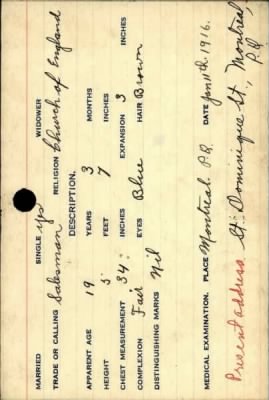 MARRIED SINGLE yes WIDOWER
TRADE OR CALLING Salesman RELIGION Church of England
DESCRIPTION.
APPARENT AGE 19 YEARS 3 MONTHS
HEIGHT 5 FEET 7 INCHES
CHEST MEASUREMENT 34 INCHES EXPANSION 3 INCHES
COMPLEXION Fair EYES Blue HAIR Brown
DISTINGUISHING MARKS Nil
MEDICAL EXAMINATION. PLACE Montreal. P.Q. DATE Jan 11th 1916.
Present address St. Dominique St., Montreal,
P.Q.